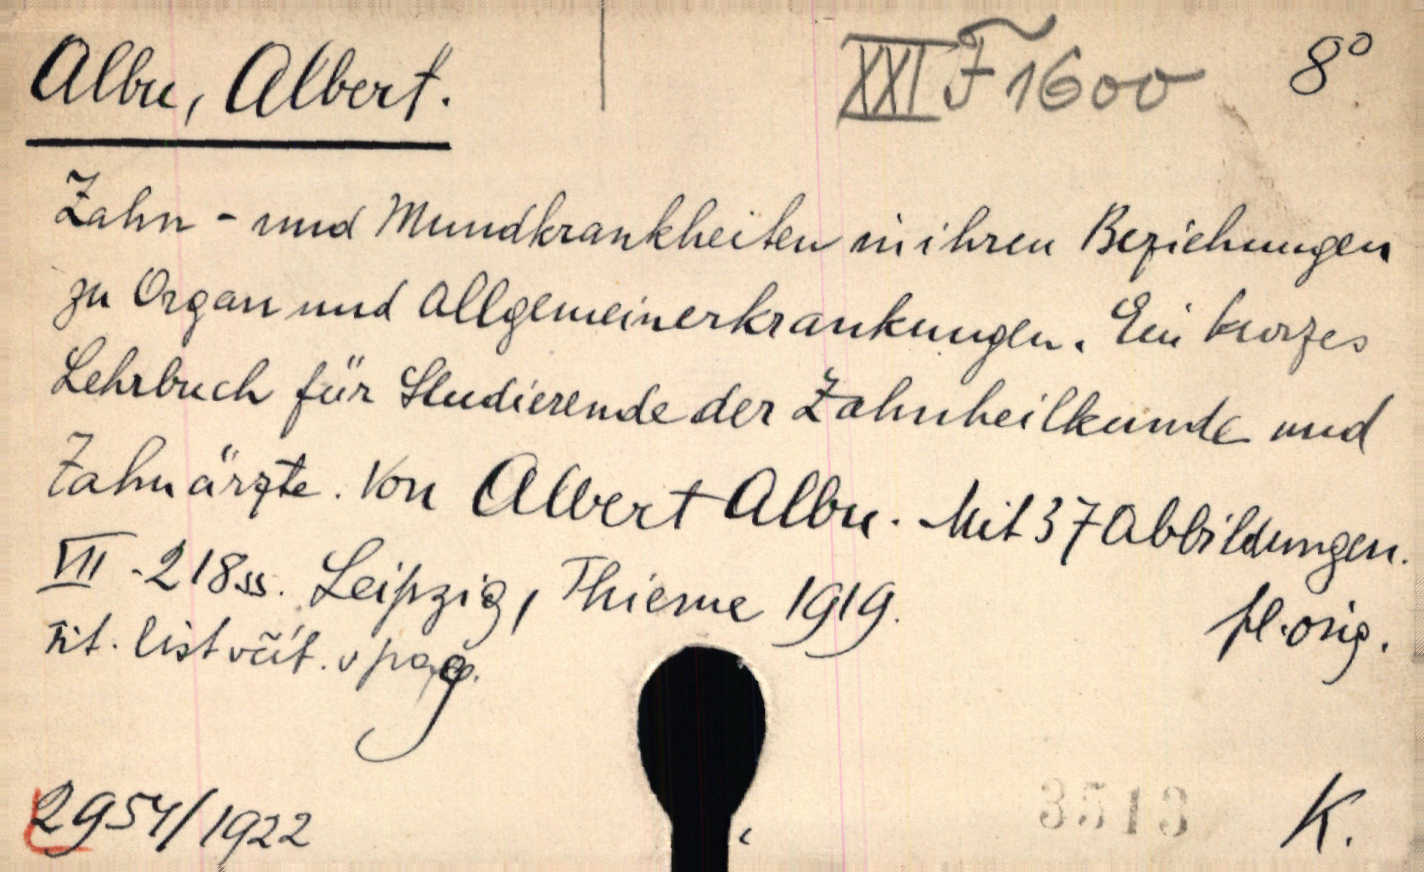 Albu, Albert.
XXI F 1600
8°
Zahn- und Mundkrankheiten in ihren Beziehungen
zu Organ und Allgemeinerkrankungen. Ein kurzes
Lehrbuch für Studierende der Zahnheilkunde und
Zahnärzte. Von Albert Albu. Mit 37 Abbildungen.
VII - 218 ss. Leipzig, Thieme 1919.
pl. orig.
tit. list včít. v pag.
2954/1922
3513
K.